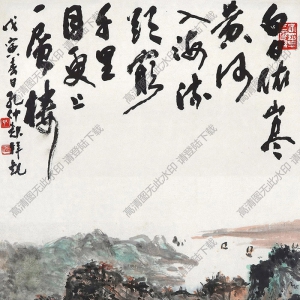 白日依山尽
黄河
入海流
欲窮
千里
目更上
一層樓
戊寅春日孔仲起
高清图无此水印 请登陆下载
高清图无此水印 请登陆下载
高清图无此水印 请登陆下载
高清图无此水印 请登陆下载